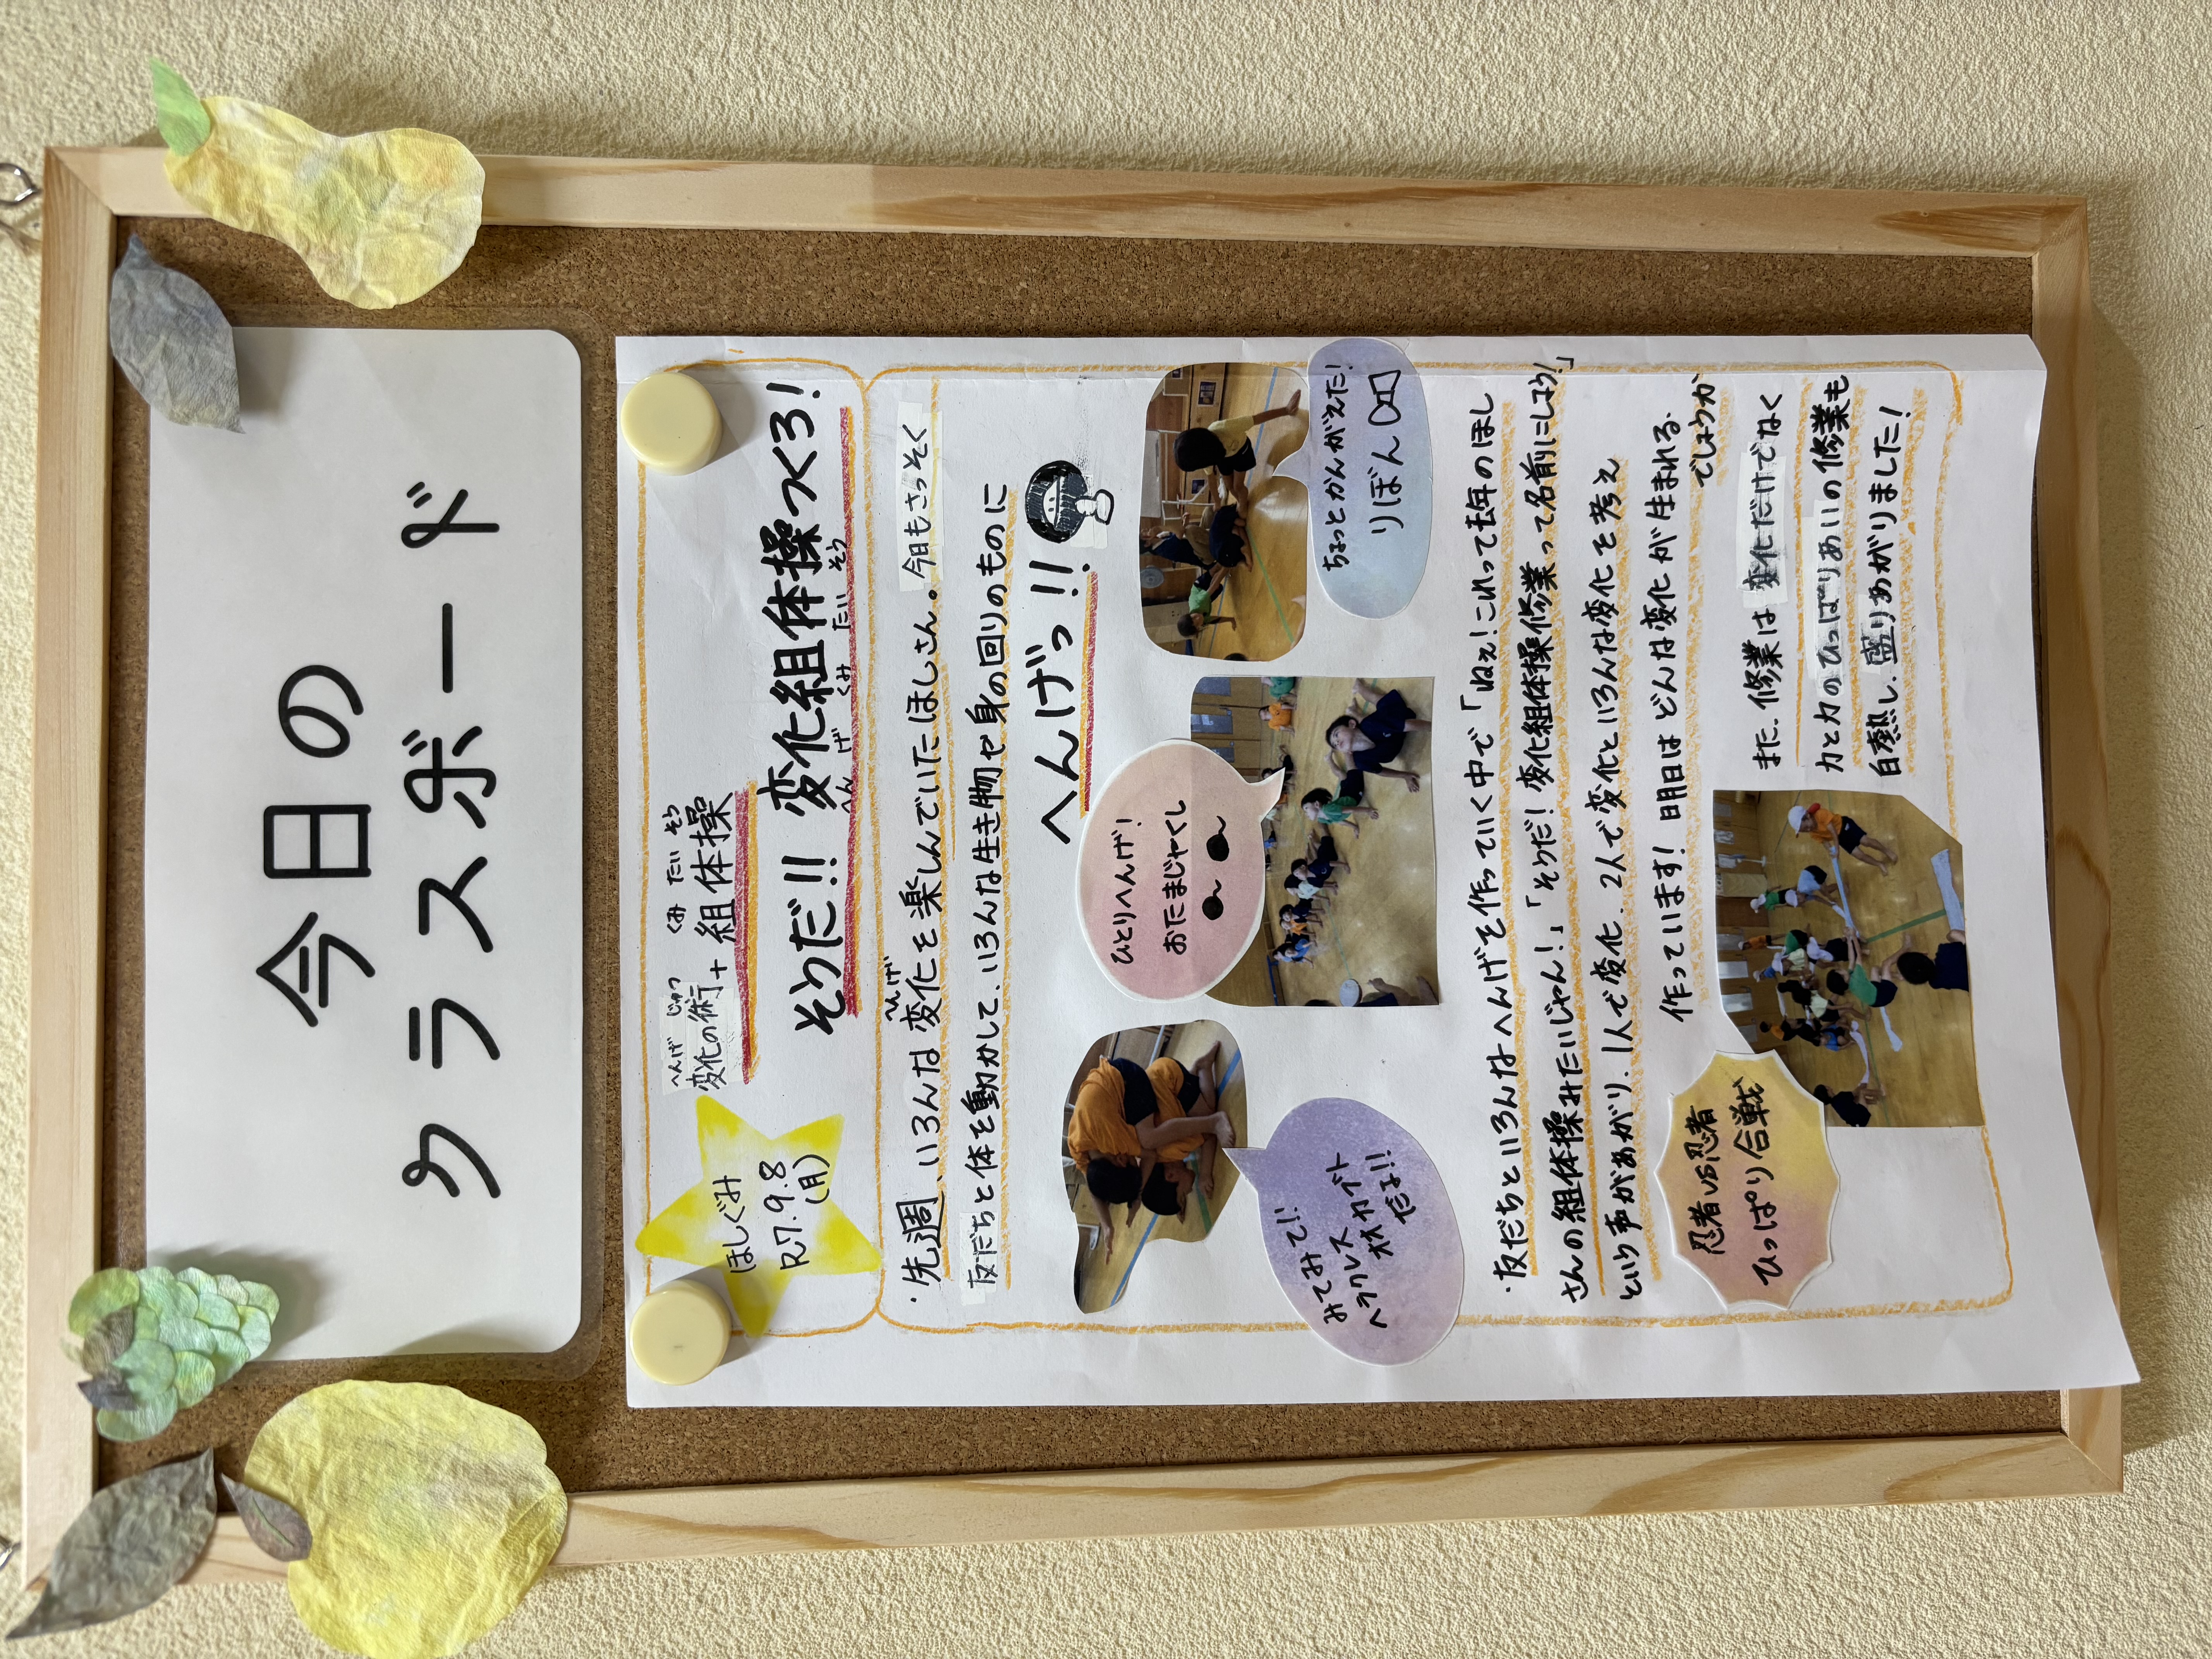 今日の
クラスボード
ほしぐみ
R7.9.8
(月)
へんげ じゅつ くみ たい そう
変化の術+組体操
そうだ!! 変化組体操つくろ!
へん げ くみ たい そう
へんげ
・先週、いろんな変化を楽しんでいたほしさん。今日もさっそく
友だちと体を動かして、いろんな生き物や身の回りのものに
へんげっ!!
みてみて!!
ヘラクレス
オオカブト
だよ!!
ひとりへんげ!
おたまじゃくし
ちょっとかんがえた!
りぼん
・友だちといろんなへんげを作っていく中で「ねぇ!これって去年のほし
さんの組体操みたいじゃん!」「そうだ!変化組体操修業って名前にしよう!」
という声があがり、1人で変化、2人で変化といろんな変化を考え
作っています!明日はどんな変化が生まれる
でしょうか
忍者VS忍者
ひっぱり合戦
また、修業は変化だけでなく
力と力のひっぱりあいの修業も
白熱し、盛りあがりました!